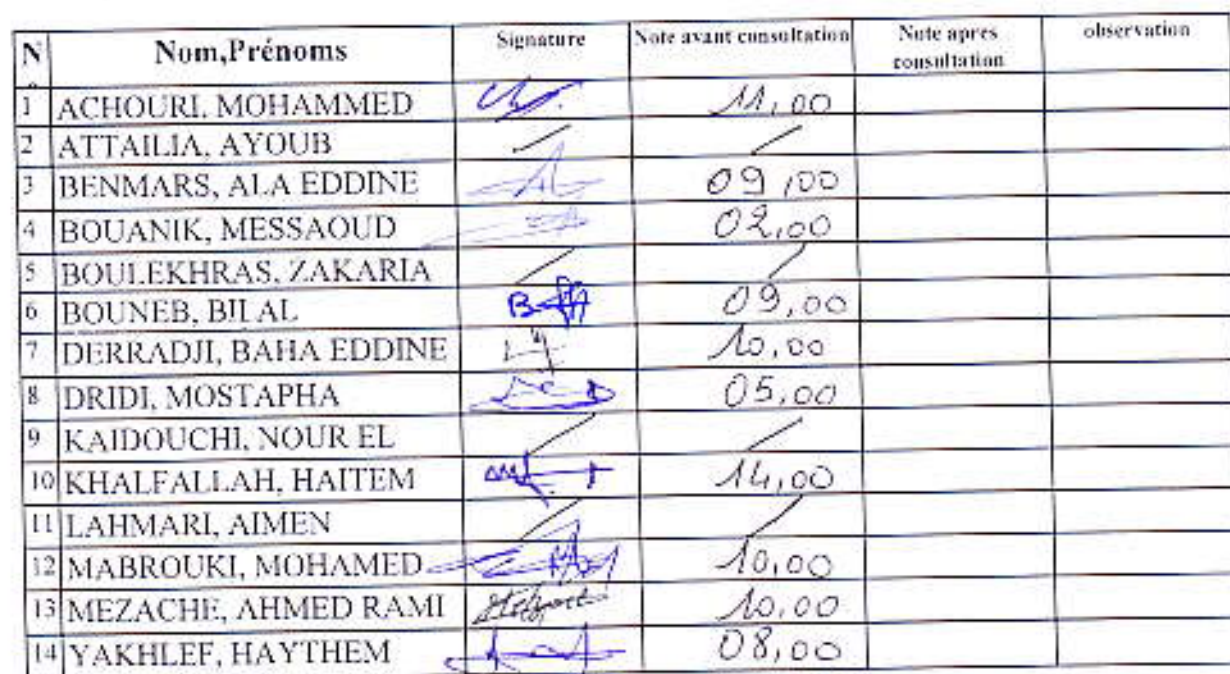 N° Nom,Prénoms Signature Note avant consultation Note apres consultation observation
1 ACHOURI, MOHAMMED 11,00
2 ATTAILIA, AYOUB / /
3 BENMARS, ALA EDDINE 09,00
4 BOUANIK, MESSAOUD 02,00
5 BOULEKHRAS, ZAKARIA / /
6 BOUNEB, BILAL 09,00
7 DERRADJI, BAHA EDDINE 10,00
8 DRIDI, MOSTAPHA 05,00
9 KAIDOUCHI, NOUR EL / /
10 KHALFALLAH, HAITEM 14,00
11 LAHMARI, AIMEN / /
12 MABROUKI, MOHAMED 10,00
13 MEZACHE, AHMED RAMI 10,00
14 YAKHLEF, HAYTHEM 08,00